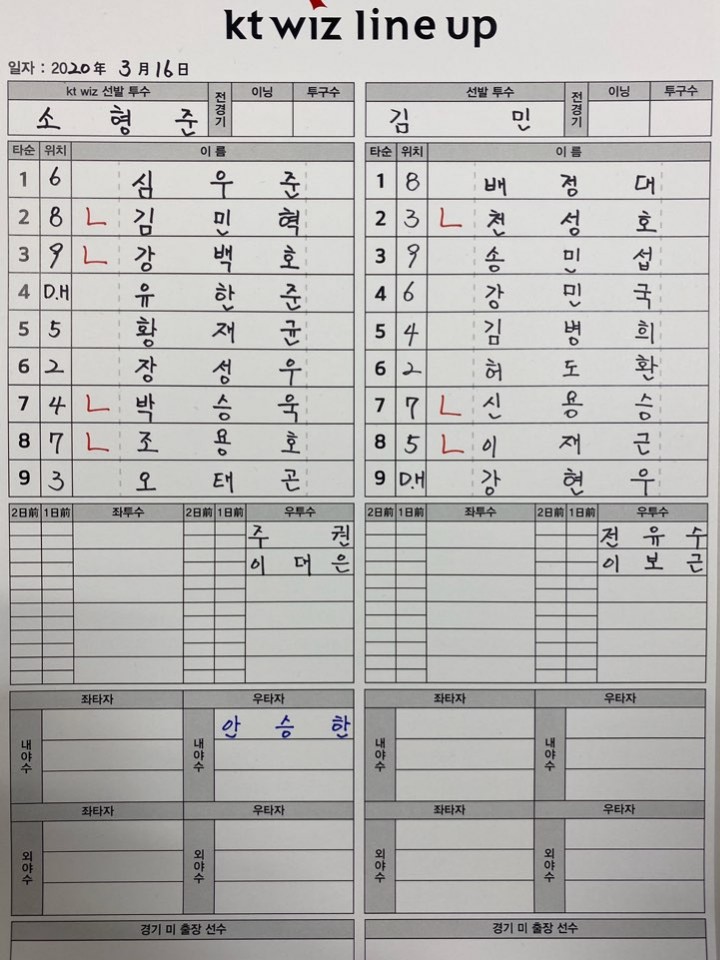 kt wiz line up
일자 : 2020 年 3 月 16 日
kt wiz 선발 투수 전경기 이닝 투구수
소 형 준
타순 위치 이 름
1 6 심 우 준
2 8 L 김 민 혁
3 9 L 강 백 호
4 D.H 유 한 준
5 5 황 재 균
6 2 장 성 우
7 4 L 박 승 욱
8 7 L 조 용 호
9 3 오 태 곤
2日前 1日前 좌투수 2日前 1日前 우투수
주 권
이 대 은
좌타자 우타자
내야수 내야수 안 승 한
좌타자 우타자
외야수 외야수
경기 미 출장 선수
선발 투수 전경기 이닝 투구수
김 민
타순 위치 이 름
1 8 배 정 대
2 3 L 천 성 호
3 9 송 민 섭
4 6 강 민 국
5 4 김 병 희
6 2 허 도 환
7 7 L 신 용 승
8 5 L 이 재 근
9 D.H 강 현 우
2日前 1日前 좌투수 2日前 1日前 우투수
전 유 수
이 보 근
좌타자 우타자
내야수 내야수
좌타자 우타자
외야수 외야수
경기 미 출장 선수